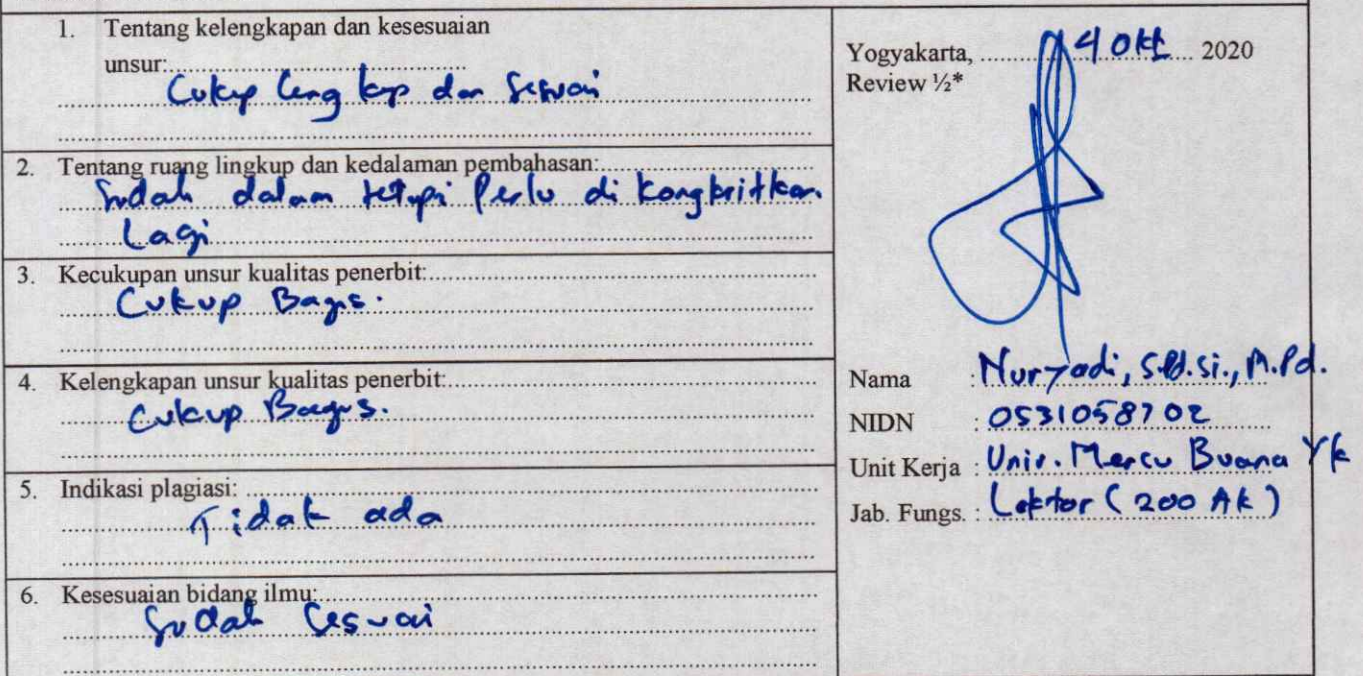 1. Tentang kelengkapan dan kesesuaian
unsur:
Cukup lengkap dan sesuai
2. Tentang ruang lingkup dan kedalaman pembahasan:
Sudah dalam tetapi perlu di kongkritkan
Lagi
3. Kecukupan unsur kualitas penerbit:
Cukup Bagus.
4. Kelengkapan unsur kualitas penerbit:
Cukup Bagus.
5. Indikasi plagiasi:
Tidak ada
6. Kesesuaian bidang ilmu:
Sudah Sesuai
Yogyakarta, 4 Okt 2020
Review ½*
Nama : Nuryadi, S.Pd.Si., M.Pd.
NIDN : 0531058702
Unit Kerja : Univ. Mercu Buana Yk
Jab. Fungs. : Lektor (200 Ak)